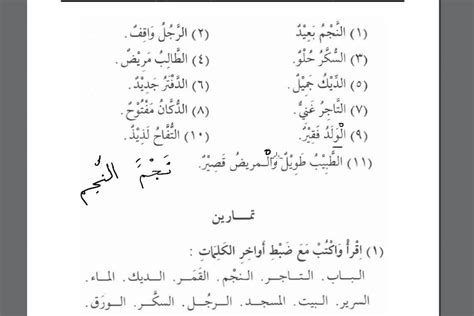 (١) النَّجْمُ بَعِيْدٌ (٢) الرَّجُلُ وَاقِفٌ.
(٣) السُّكَّرُ حُلْوٌ. (٤) الطَّالِبُ مَرِيْضٌ.
(٥) الدِّيْكُ جَمِيْلٌ. (٦) الدَّفْتَرُ جَدِيْدٌ.
(٧) التَّاجِرُ غَنِيٌّ. (٨) الدُّكَّانُ مَفْتُوْحٌ.
(٩) الْوَلَدُ فَقِيْرٌ. (١٠) التُّفَّاحُ لَذِيْذٌ.
(١١) الطَّبِيْبُ طَوِيْلٌ وَالْمَرِيضُ قَصِيْرٌ.
نَجْمٌ النَّجْم
تمارين
(١) اِقْرَأْ وَاكْتُبْ مَعَ ضَبْطِ أَوَاخِرِ الكَلِمَاتِ:
البـاب. التـاجـر. النجْم. القَمَر. الديك. الماء.
السرير. البيت. المسجد. الرجُل. السكَّر. الورَق.